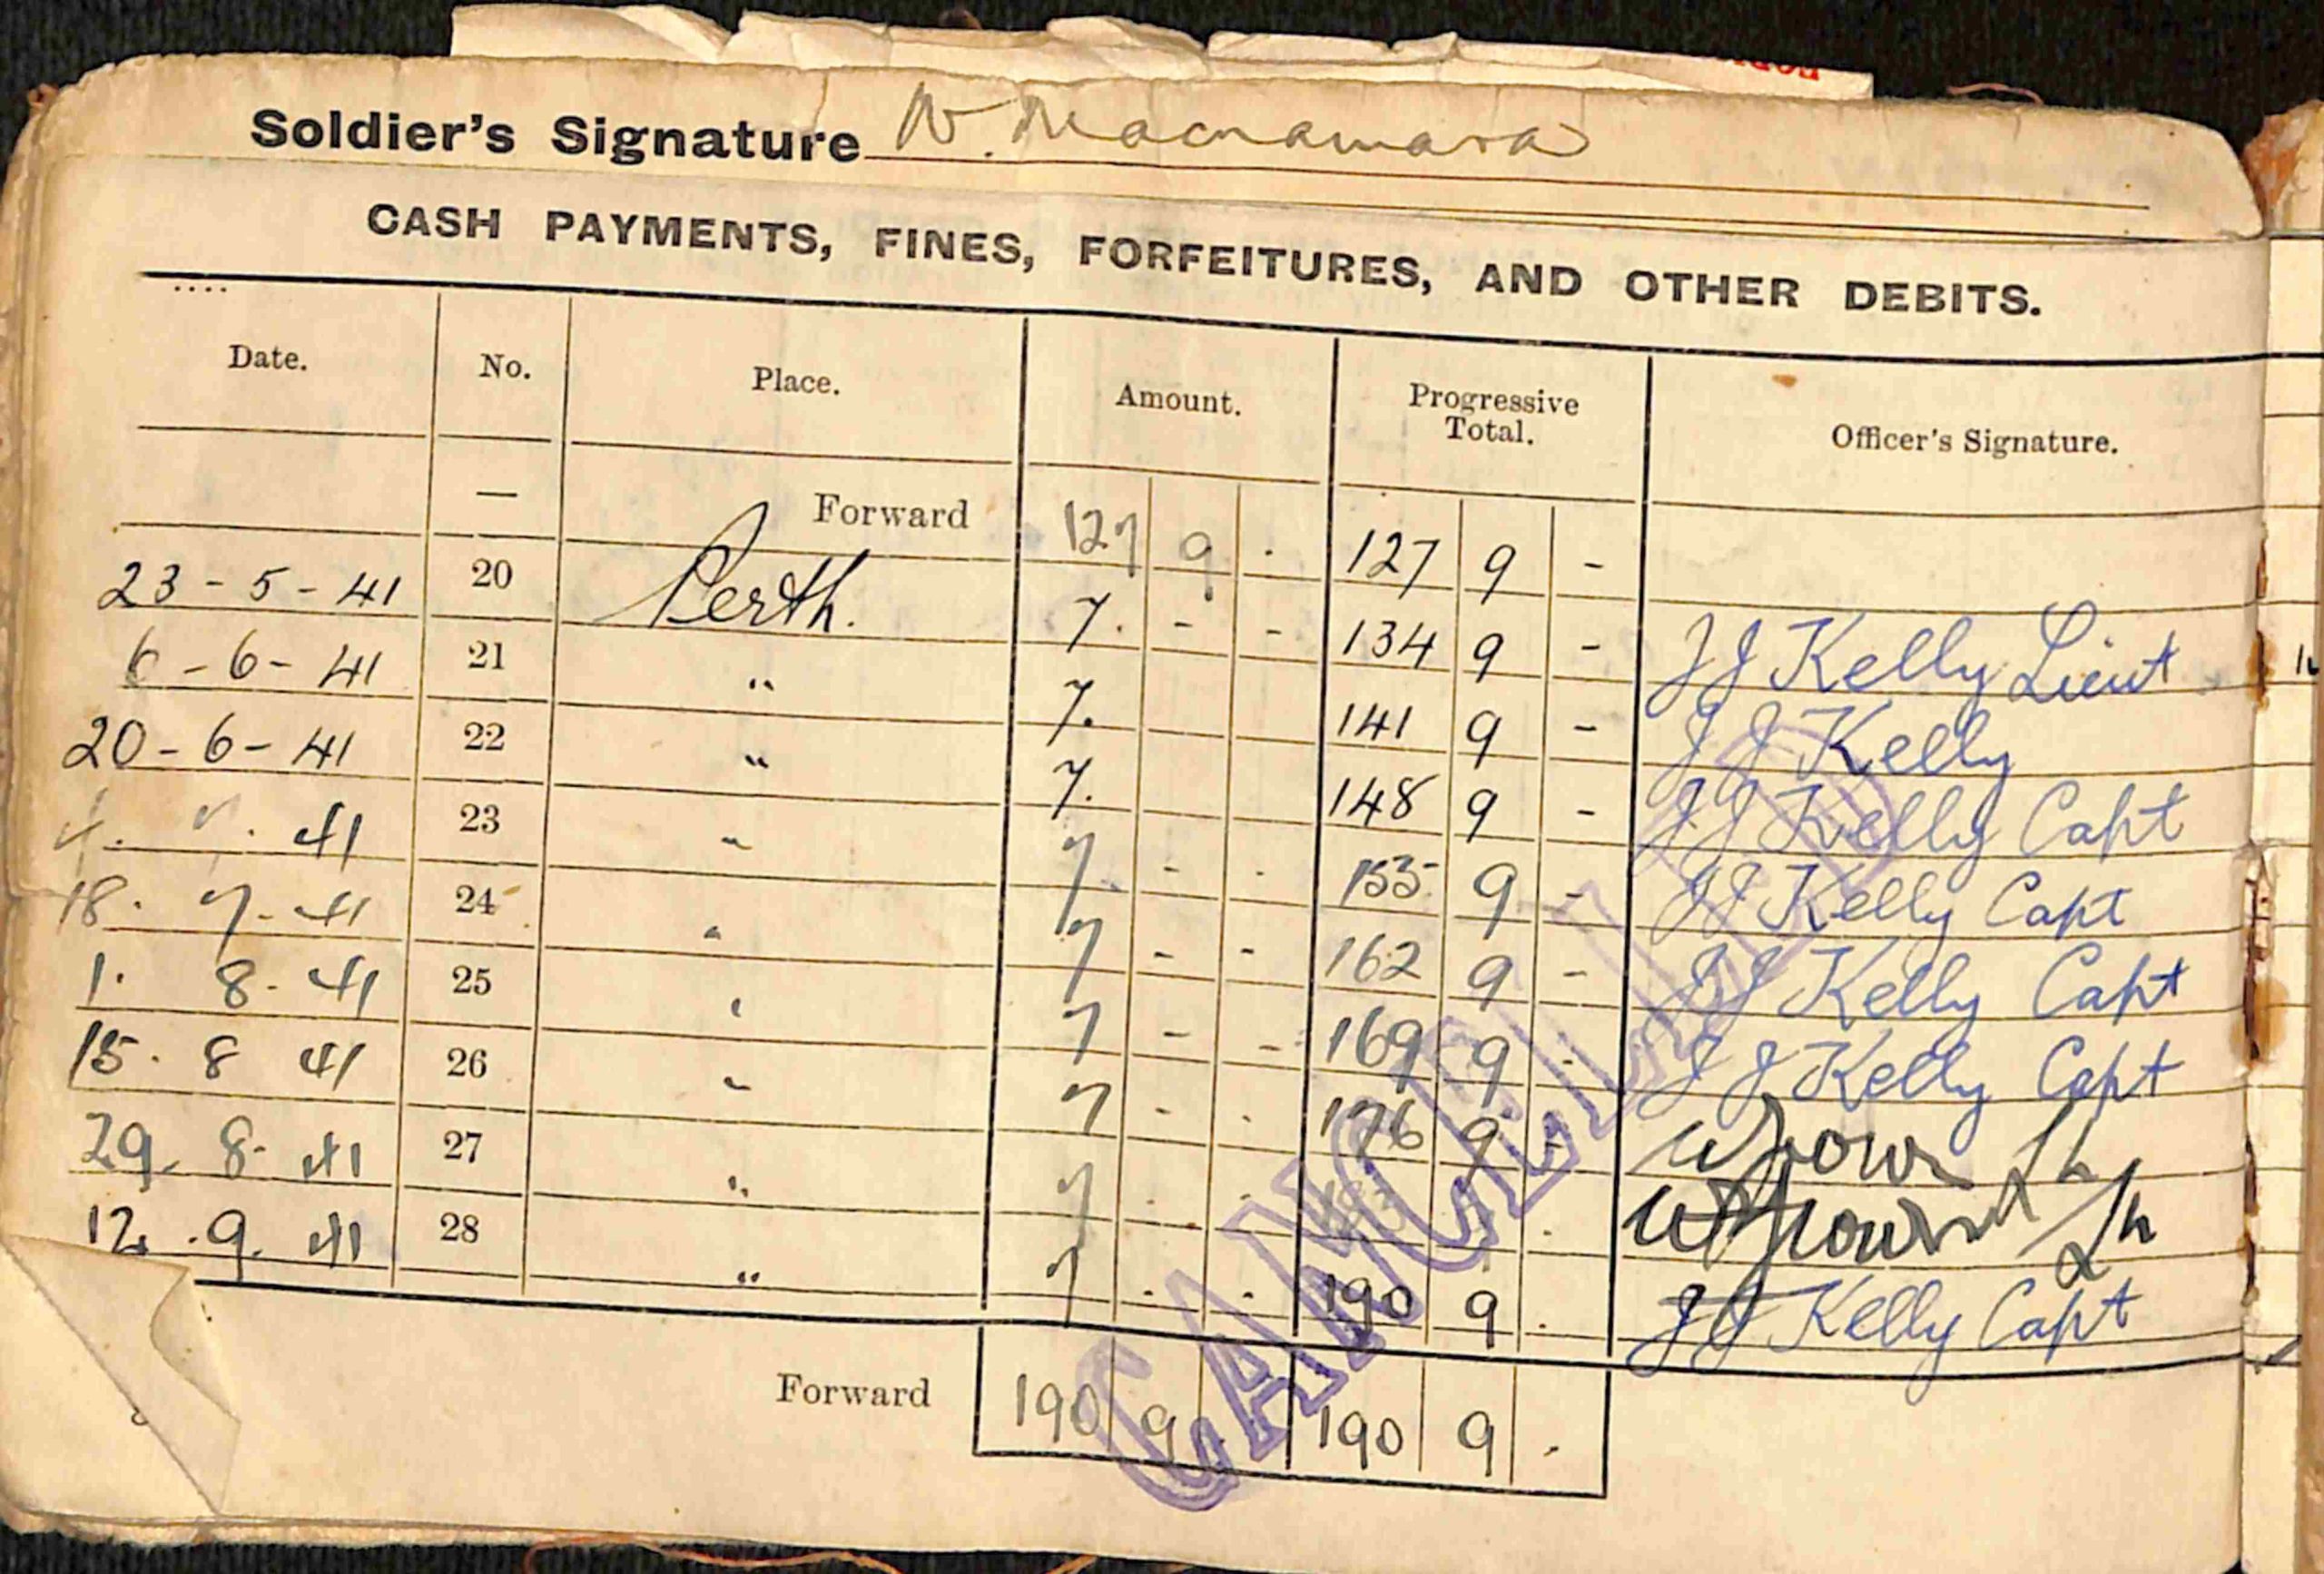 Soldier's Signature W. Macnamara
CASH PAYMENTS, FINES, FORFEITURES, AND OTHER DEBITS.
Date. No. Place. Amount. Progressive Total. Officer's Signature.
— Forward 127 9 . 127 9 -
23-5-41 20 Perth. 7. - - 134 9 - JJ Kelly Lieut
6-6-41 21 " 7. 141 9 - JJ Kelly
20-6-41 22 " 7. 148 9 - JJ Kelly Capt
41 23 " 7 - - 155 9 - JJ Kelly Capt
18. 7-41 24 " 7 - - 162 9 - JJ Kelly Capt
1. 8-41 25 " 7 - - 169 9 - JJ Kelly Capt
15. 8 41 26 " 7 - . 176 9 -
29. 8. 41 27 " 7 . . 9 .
12. .9. 41 28 " 7 . . 190 9 . JJ Kelly Capt
Forward 190 9 . 190 9 .
CANCELLED